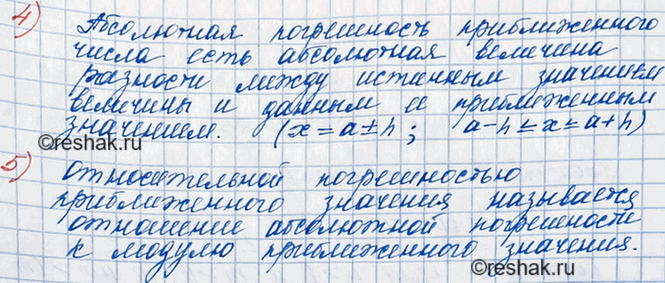 4) Абсолютная погрешность приближенного
числа есть абсолютная величина
разности между истинным значением
величины и данным её приближенным
значением. (x = a ± h; a-h ≤ x ≤ a+h)
5) Относительной погрешностью
приближенного значения называется
отношение абсолютной погрешности
к модулю приближенного значения.
©reshak.ru
©reshak.ru
©reshak.ru